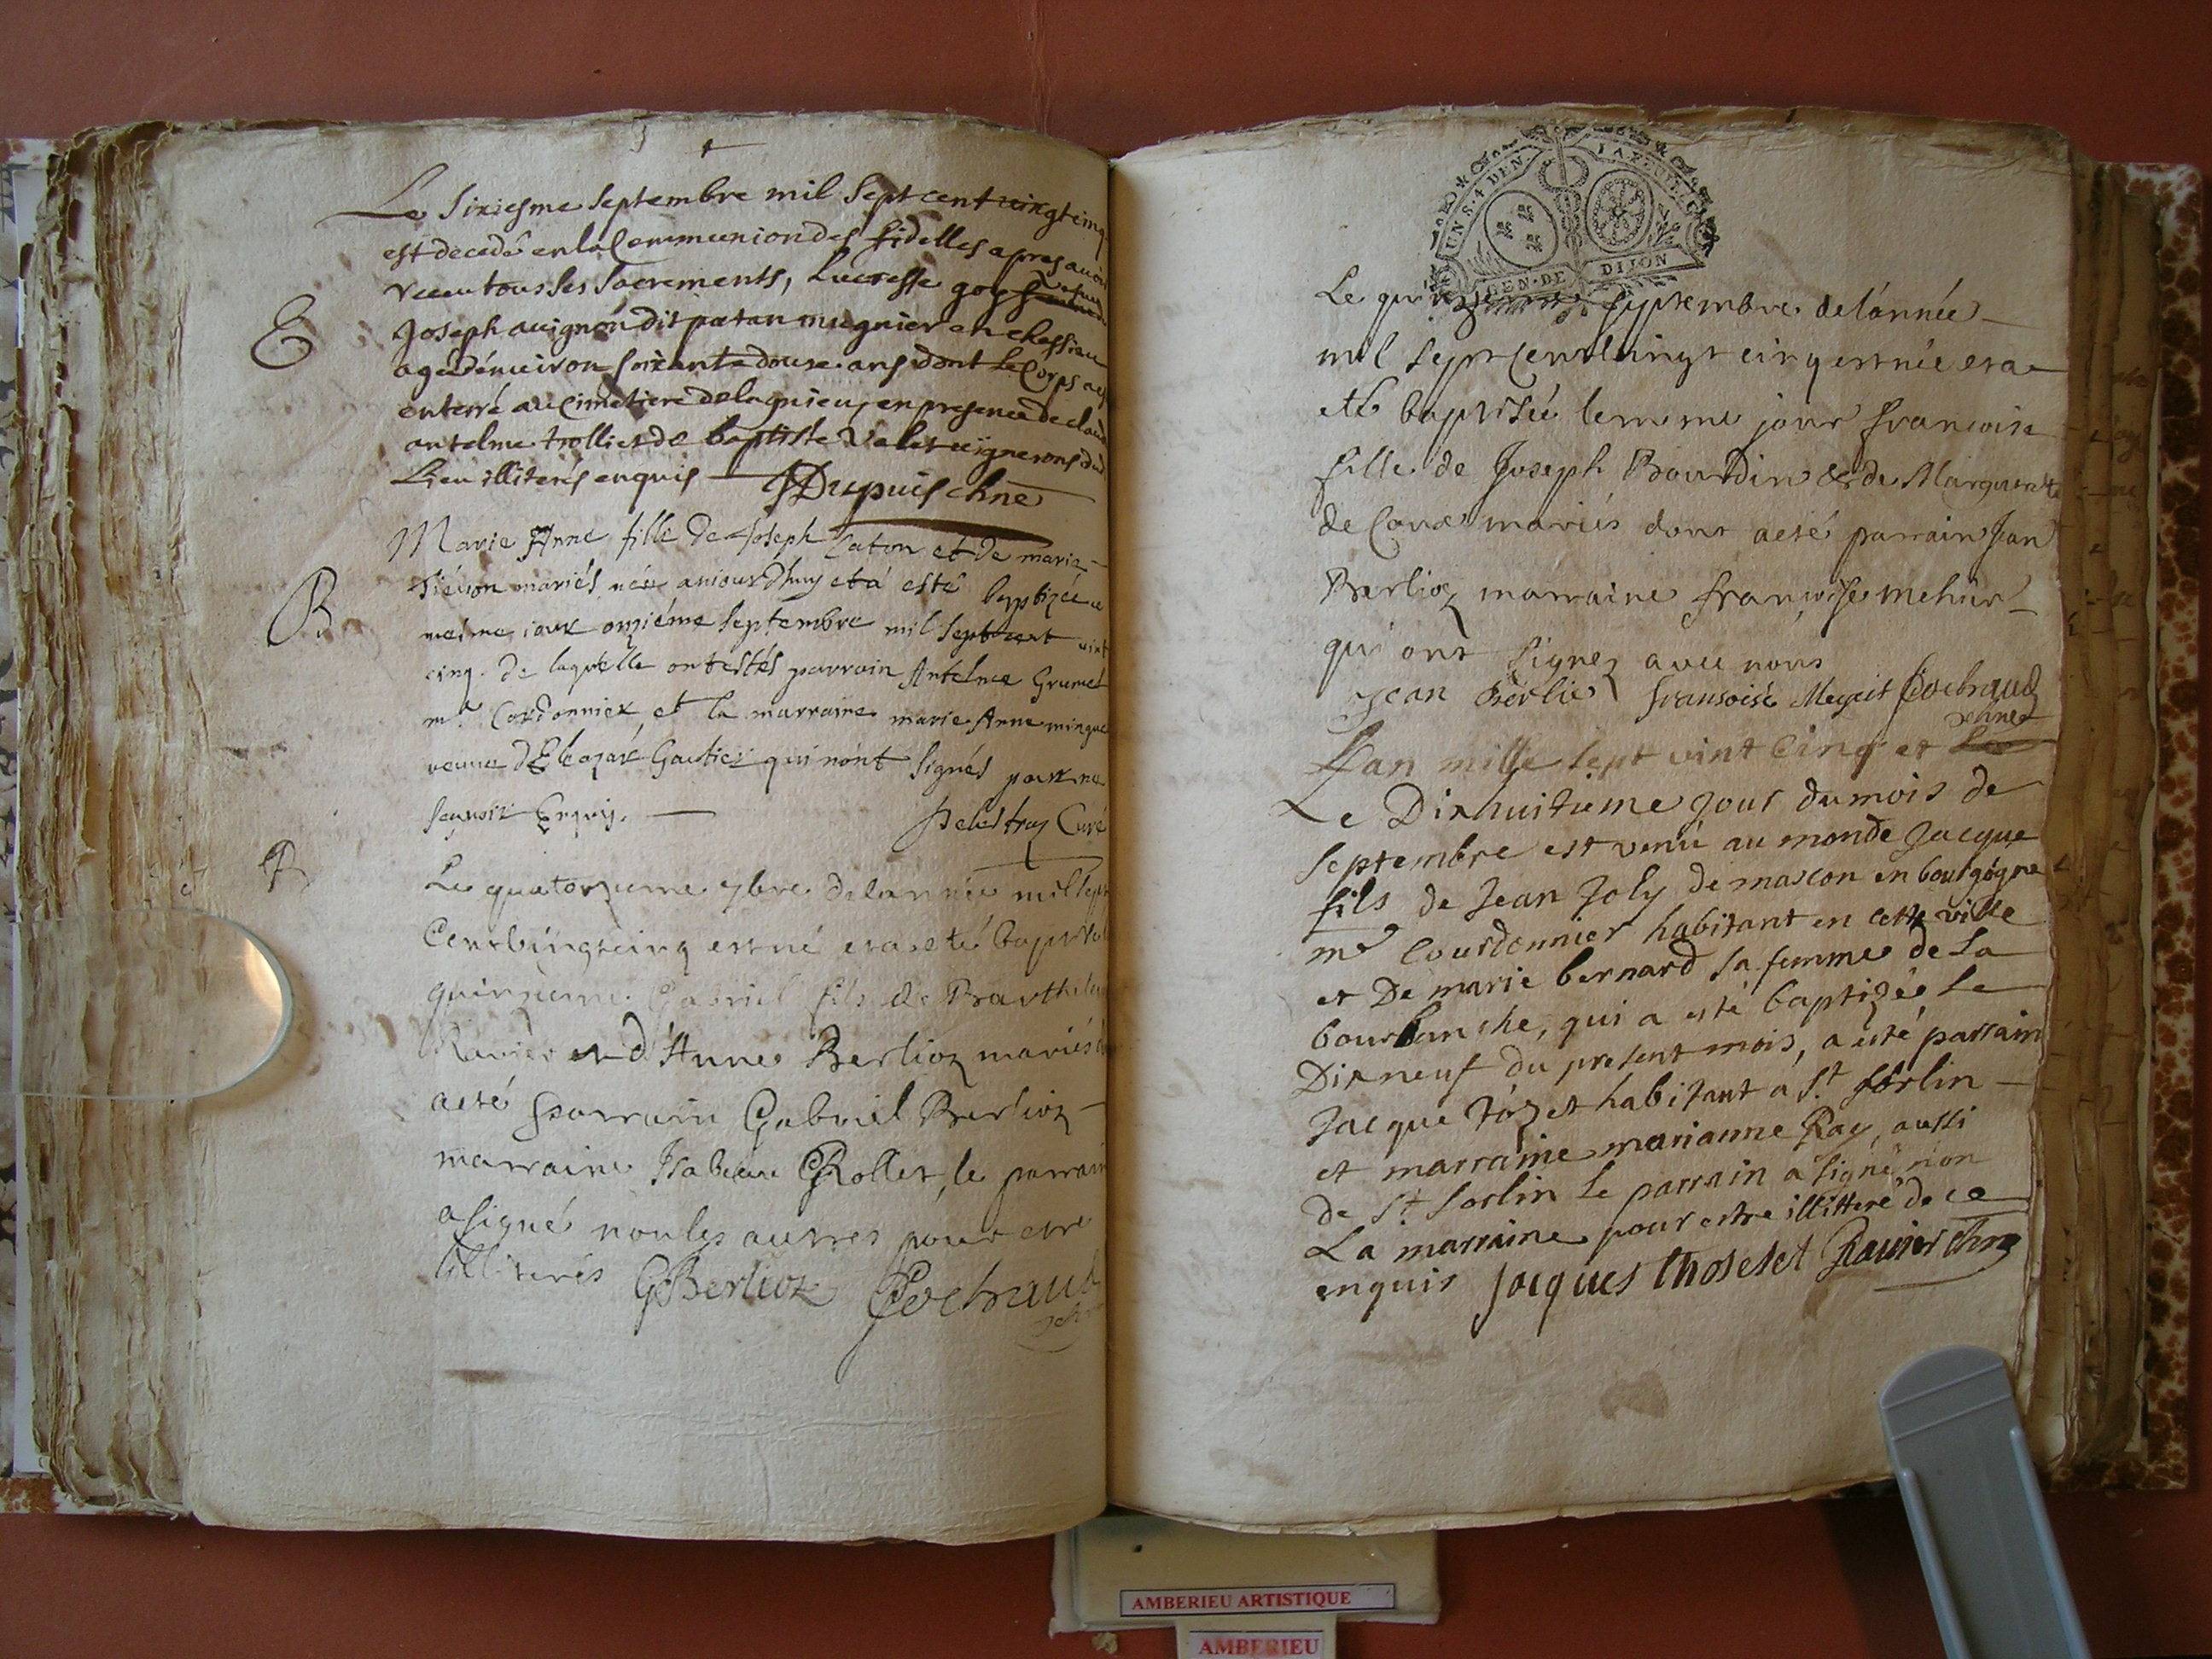 Le sixiesme septembre mil sept cent vingtcinq
est decedé en la Communion des fidelles apres auoir
receu tous les sacrements, Lucresse goy
vefue
Joseph auignon dit patan mugnier en chessieu
agé d'enuiron soixante douse ans dont le Corps a esté
enterré au Cimetiere de lagnieu, en presence de claude
antelme trollier de baptiste valet uignerons dud
Lieu illiterés enquis Dupuis chne
E
Marie Anne fille de Joseph Caton et de marie
Tieuon mariés née auiourdhuy et a esté baptizée ce
mesme iour onziéme septembre mil sept cent vint
cinq. de laquelle ont estés parrain Antelme Grumet
mr Cordonnier et la marraine marie Anne
veuue d'Eleazard Gautier qui n'ont signés pour ne
sçauoir Enquis. Curé
B
Le quatorzieme 7bre de lannée mil sept
Cent vingt cinq est né et a eté baptisé le
quinzieme Gabriel fils de Barthelemy
Ravier et d'Anne Berlioz mariés dont
a eté parrain Gabriel Berlioz
marraine Isabeau Rollet, le parrain
a signé non les autres pour etre
illiterés GBerlioz Cochraud
B
UN S. 4 DEN.
LA FEUILLE
GEN. DE DIJON
Le quinzieme septembre de l'année
mil sept Cent vingt cinq est née et a
eté baptisée le meme jour francoise
fille de Joseph Bourdin & de Marguerite
de Coux mariés dont a eté parrain Jean
Berlioz marraine françoise
qui ont signez avec nous
Jean Berlioz fransoise Cochraud
chne
Lan mille sept vint Cinq et
Le Dixhuitieme jour du mois de
septembre est venu au monde Jacque
fils de Jean Joly de mascon en bourgogne
mr Courdonnier habitant en cette ville
et De marie bernard sa femme de la
bourbanche, qui a esté baptizée le
Dixneuf du present mois, a esté parrain
Jacque Tozet habitant à St Sorlin
et marraine marianne Ray, aussi
de St Sorlin le parrain a signé non
La marraine pour estre illitteré de ce
enquis jacques thoseset Rauier chne
AMBERIEU ARTISTIQUE
AMBERIEU